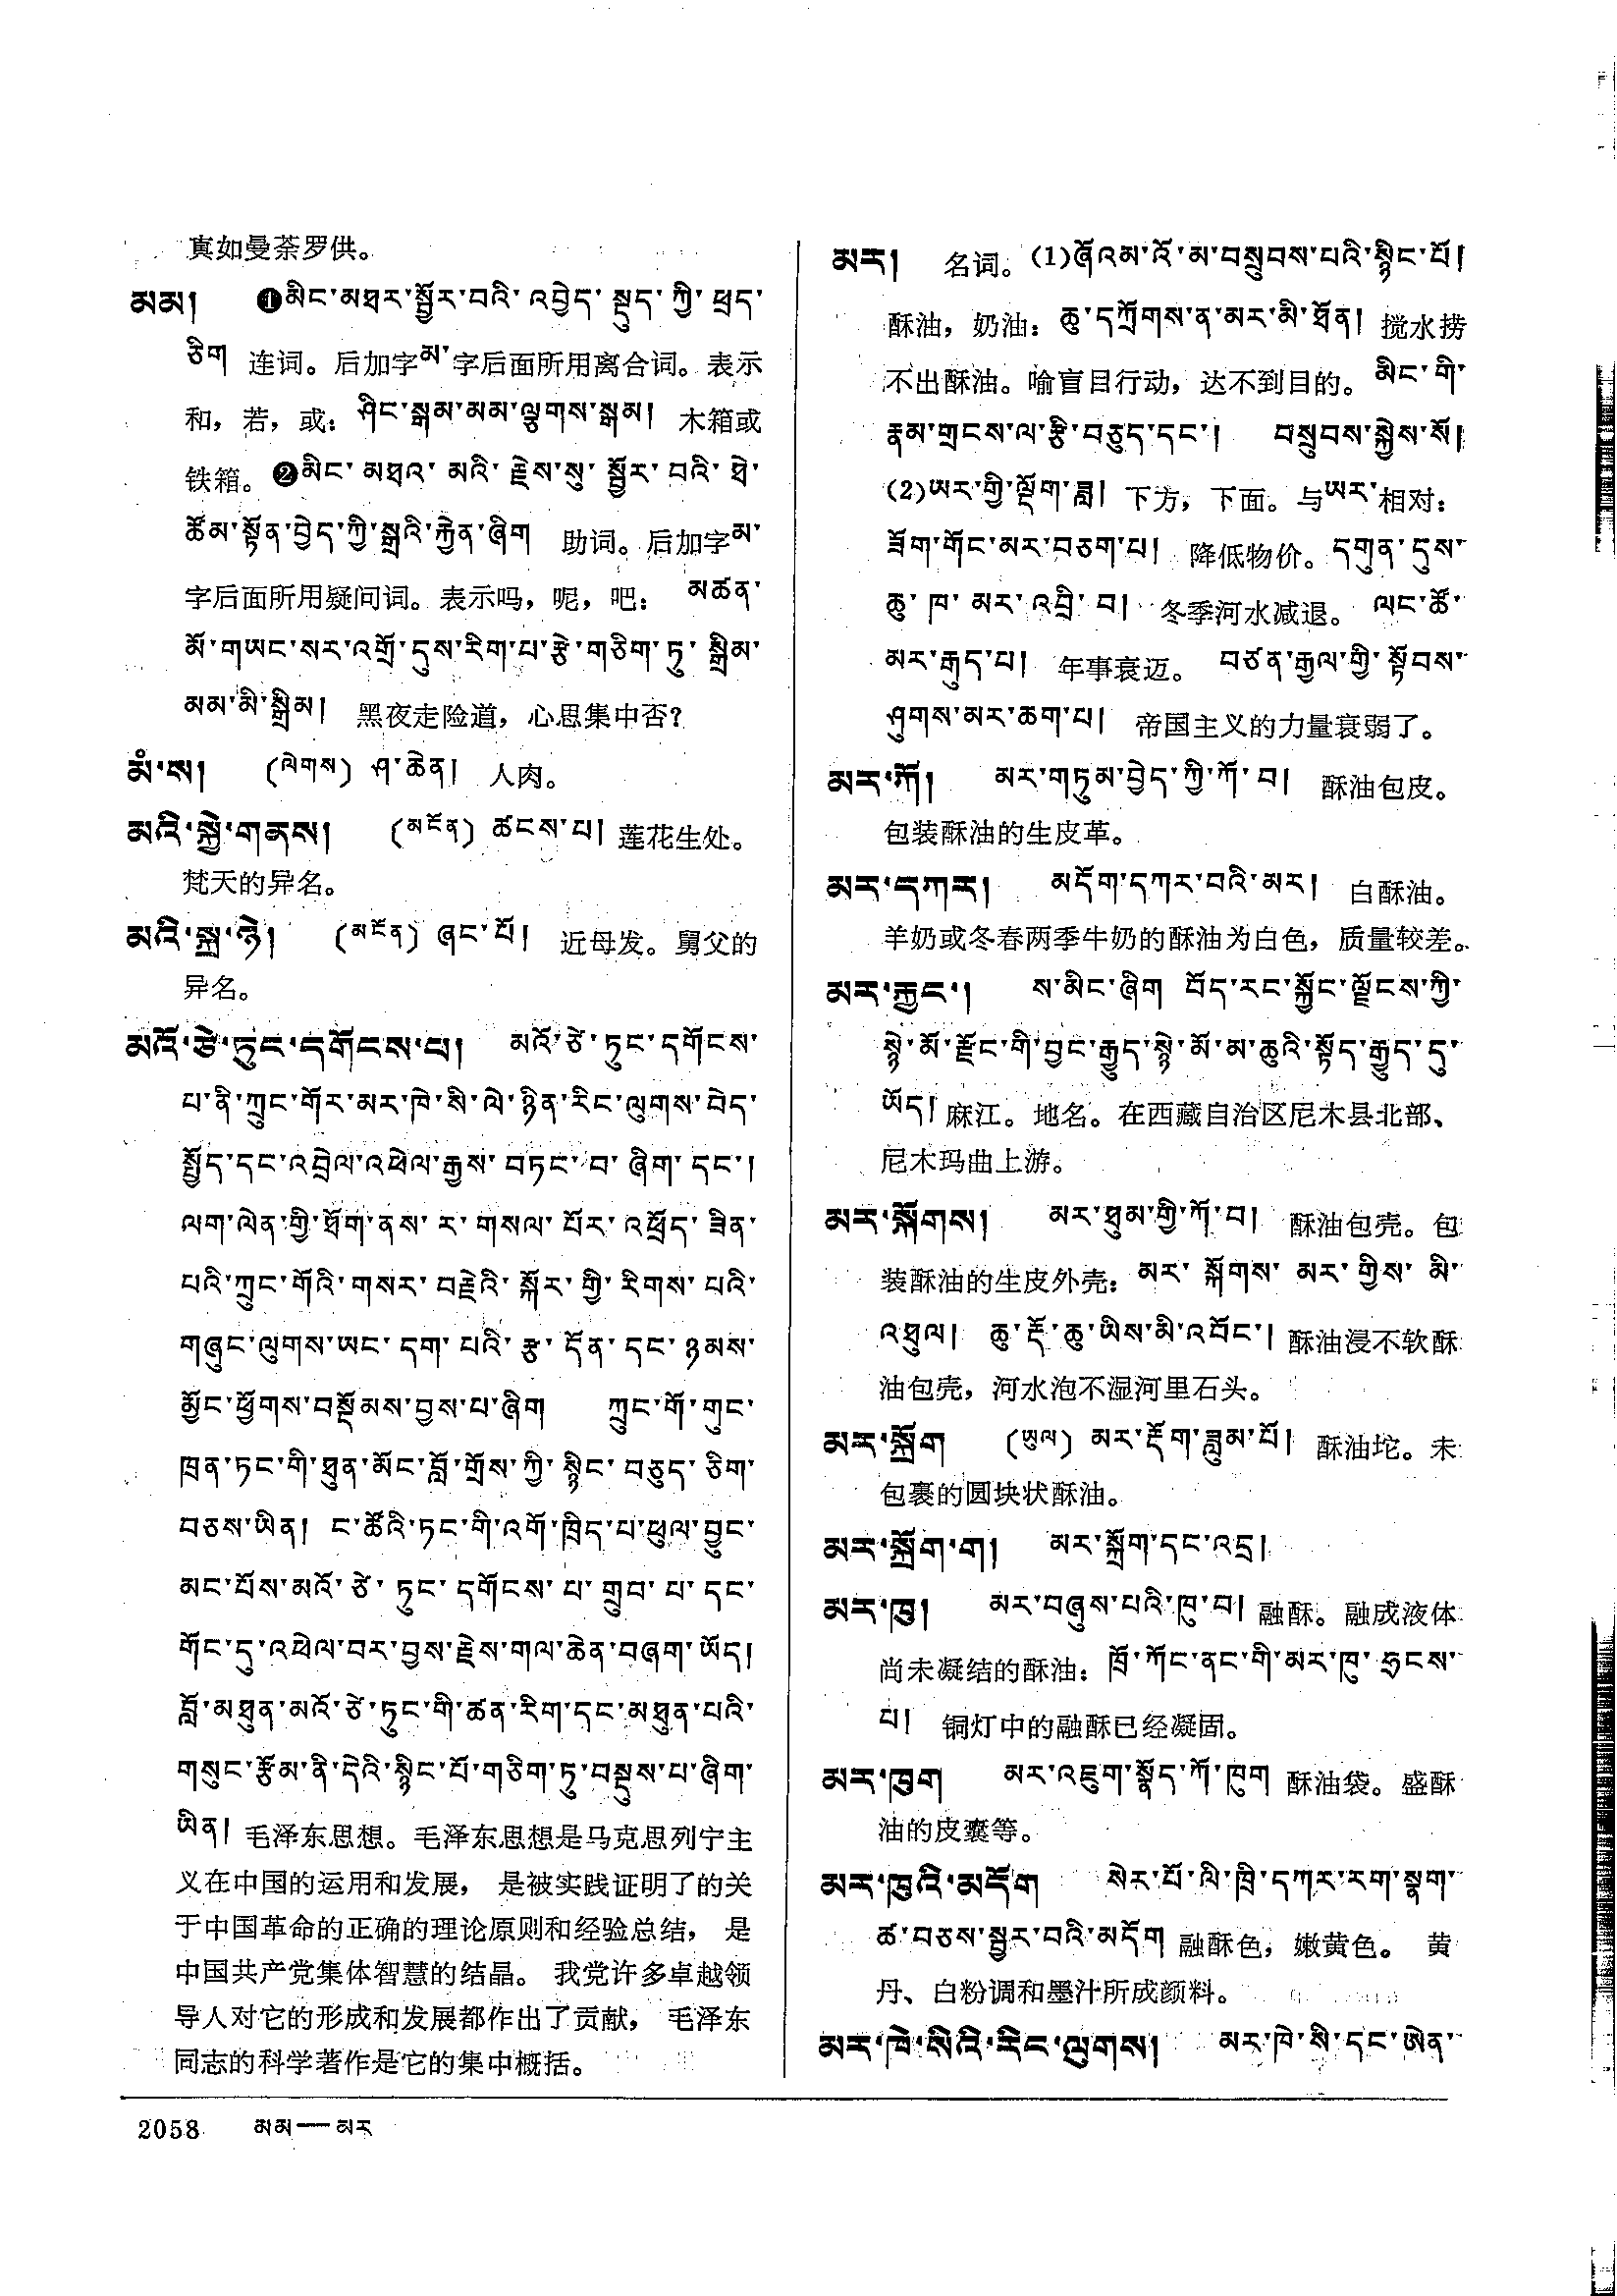 真如曼荼罗供。
མམ། ❶མིང་མཐར་སྦྱོར་བའི་འབྱེད་སྡུད་ཀྱི་ཕྲད་
ཅིག 连词。后加字མ་字后面所用离合词。表示
和，若，或：ཤིང་སྒམ་མམ་ལྕགས་སྒམ། 木箱或
铁箱。❷མིང་མཐའ་མའི་རྗེས་སུ་སྦྱོར་བའི་ཐེ་
ཚོམ་སྟོན་བྱེད་ཀྱི་སྒྲའི་རྐྱེན་ཞིག 助词。后加字མ་
字后面所用疑问词。表示吗，呢，吧： མཚན་
མོ་གཡང་སར་འགྲོ་དུས་རིག་པ་རྩེ་གཅིག་ཏུ་སྒྲིམ་
མམ་མི་སྒྲིམ། 黑夜走险道，心思集中否？
མཾ་ས། (ལེགས) ཤ་ཆེན། 人肉。
མའི་སྐྱེ་གནས། (མངོན) ཚངས་པ། 莲花生处。
梵天的异名。
མའི་སྐྲ་ཉེ། (མངོན) ཞང་པོ། 近母发。舅父的
异名。
མའོ་ཙེ་ཏུང་དགོངས་པ། མའོ་ཙེ་ཏུང་དགོངས་
པ་ནི་ཀྲུང་གོར་མར་ཁེ་སི་ལེ་ཉིན་རིང་ལུགས་བེད་
སྤྱོད་དང་འབྲེལ་འཕེལ་རྒྱས་བཏང་བ་ཞིག་དང་།
ལག་ལེན་གྱི་ཐོག་ནས་ར་གསལ་པོར་འཕྲོད་ཟིན་
པའི་ཀྲུང་གོའི་གསར་བརྗེའི་སྐོར་གྱི་རིགས་པའི་
གཞུང་ལུགས་ཡང་དག་པའི་རྩ་དོན་དང་ཉམས་
མྱོང་ཕྱོགས་བསྡོམས་བྱས་པ་ཞིག ཀྲུང་གོ་གུང་
ཁྲན་ཏང་གི་ཐུན་མོང་བློ་གྲོས་ཀྱི་སྙིང་བཅུད་ཅིག་
བཅས་ཡིན། ང་ཚོའི་ཏང་གི་འགོ་ཁྲིད་པ་ཕུལ་བྱུང་
མང་པོས་མའོ་ཙེ་ཏུང་དགོངས་པ་གྲུབ་པ་དང་
གོང་དུ་འཕེལ་བར་བྱས་རྗེས་གལ་ཆེན་བཞག་ཡོད།
བློ་མཐུན་མའོ་ཙེ་ཏུང་གི་ཚན་རིག་དང་མཐུན་པའི་
གསུང་རྩོམ་ནི་དེའི་སྙིང་པོ་གཅིག་ཏུ་བསྡུས་པ་ཞིག་
ཡིན། 毛泽东思想。毛泽东思想是马克思列宁主
义在中国的运用和发展， 是被实践证明了的关
于中国革命的正确的理论原则和经验总结， 是
中国共产党集体智慧的结晶。 我党许多卓越领
导人对它的形成和发展都作出了贡献， 毛泽东
同志的科学著作是它的集中概括。
མར། 名词。(1)ཞོའམ་འོ་མ་བསྲུབས་པའི་སྙིང་པོ།
酥油，奶油：ཆུ་དཀྲོགས་ན་མར་མི་ཐོན། 搅水捞
不出酥油。喻盲目行动，达不到目的。མིང་གི་
རྣམ་གྲངས་ལ་རྩི་བཅུད་དང་། བསྲུབས་སྐྱེས་སོ།
(2)ཡར་གྱི་ལྡོག་ཟླ། 下方，下面。与ཡར་相对：
ཟོག་གོང་མར་བཅག་པ། 降低物价。དགུན་དུས་
ཆུ་ཁ་མར་འབྲི་བ། 冬季河水减退。 ལང་ཚོ་
མར་རྒུད་པ། 年事衰迈。 བཙན་རྒྱལ་གྱི་སྟོབས་
ཤུགས་མར་ཆག་པ། 帝国主义的力量衰弱了。
མར་ཀོ། མར་གཏུམ་བྱེད་ཀྱི་ཀོ་བ། 酥油包皮。
包装酥油的生皮革。
མར་དཀར། མདོག་དཀར་བའི་མར། 白酥油。
羊奶或冬春两季牛奶的酥油为白色，质量较差。
མར་རྐྱང་། ས་མིང་ཞིག བོད་རང་སྐྱོང་ལྗོངས་ཀྱི་
སྙེ་མོ་རྫོང་གི་བྱང་རྒྱུད་སྙེ་མོ་མ་ཆུའི་སྟོད་རྒྱུད་དུ་
ཡོད། 麻江。地名。在西藏自治区尼木县北部、
尼木玛曲上游。
མར་སྐོགས། མར་ཐུམ་གྱི་ཀོ་བ། 酥油包壳。包
装酥油的生皮外壳：མར་སྐོགས་མར་གྱིས་མི་
འཐུལ། ཆུ་རྡོ་ཆུ་ཡིས་མི་འབོང་། 酥油浸不软酥
油包壳，河水泡不湿河里石头。
མར་སྐྲོག (ཡུལ) མར་རྡོག་ཟླུམ་པོ། 酥油坨。未
包裹的圆块状酥油。
མར་སྐྲོག་ག། མར་སྐྲོག་དང་འདྲ།
མར་ཁུ། མར་བཞུས་པའི་ཁུ་བ། 融酥。融成液体
尚未凝结的酥油：ཁྲོ་ཀོང་ནང་གི་མར་ཁུ་ཧྲངས་
པ། 铜灯中的融酥已经凝固。
མར་ཁུག མར་འཇུག་སྣོད་ཀོ་ཁུག 酥油袋。盛酥
油的皮囊等。
མར་ཁུའི་མདོག སེར་པོ་ལི་ཁྲི་དཀར་རག་སྣག་
ཚ་བཅས་སྦྱར་བའི་མདོག 融酥色，嫩黄色。 黄
丹、白粉调和墨汁所成颜料。
མར་ཁེ་སིའི་རིང་ལུགས། མར་ཁེ་སི་དང་ཨེན་
2058 མམ—མར